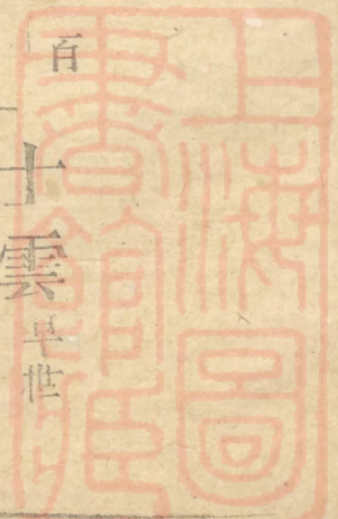 上海圖
書館藏
百
士雲 早世